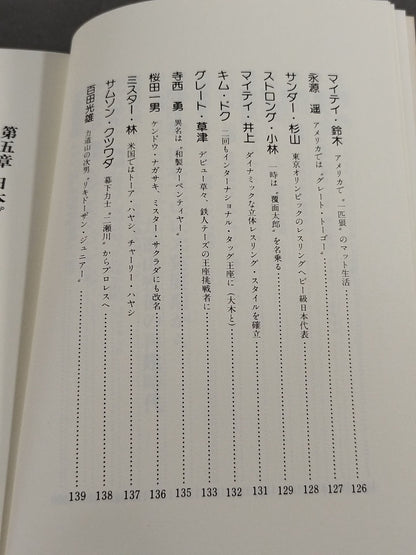 マイティ・鈴木　アメリカで“一匹狼”のマット生活……126
永源　遥　アメリカでは“グレート・トーゴー”……127
サンダー・杉山　東京オリンピックのレスリングヘビー級日本代表……128
ストロング・小林　一時は“覆面太郎”を名乗る……129
マイティ・井上　ダイナミックな立体レスリング・スタイルを確立……131
キム・ドク　二回もインターナショナル・タッグ王座に（大木と）……132
グレート・草津　デビュー草々、鉄人テーズの王座挑戦者に……133
寺西　勇　異名は“和製カーペンティヤー”……135
桜田一男　ケンドウ・ナガサキ、ミスター・サクラダにも改名……136
ミスター・林　米国ではトーア・ハヤシ、チャーリー・ハヤシ……137
サムソン・クツワダ　幕下力士“二瀬川”からプロレスへ……138
百田光雄　力道山の次男“リキドーザン・ジュニアー”……139
第五章　日本